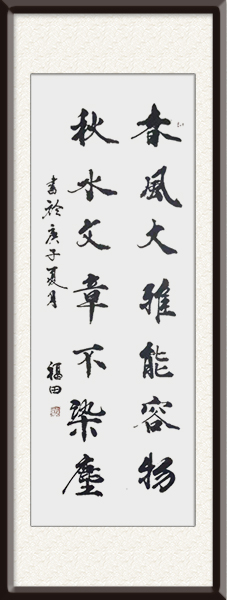 春風大雅能容物
秋水文章不染塵
書於庚子夏月
福田